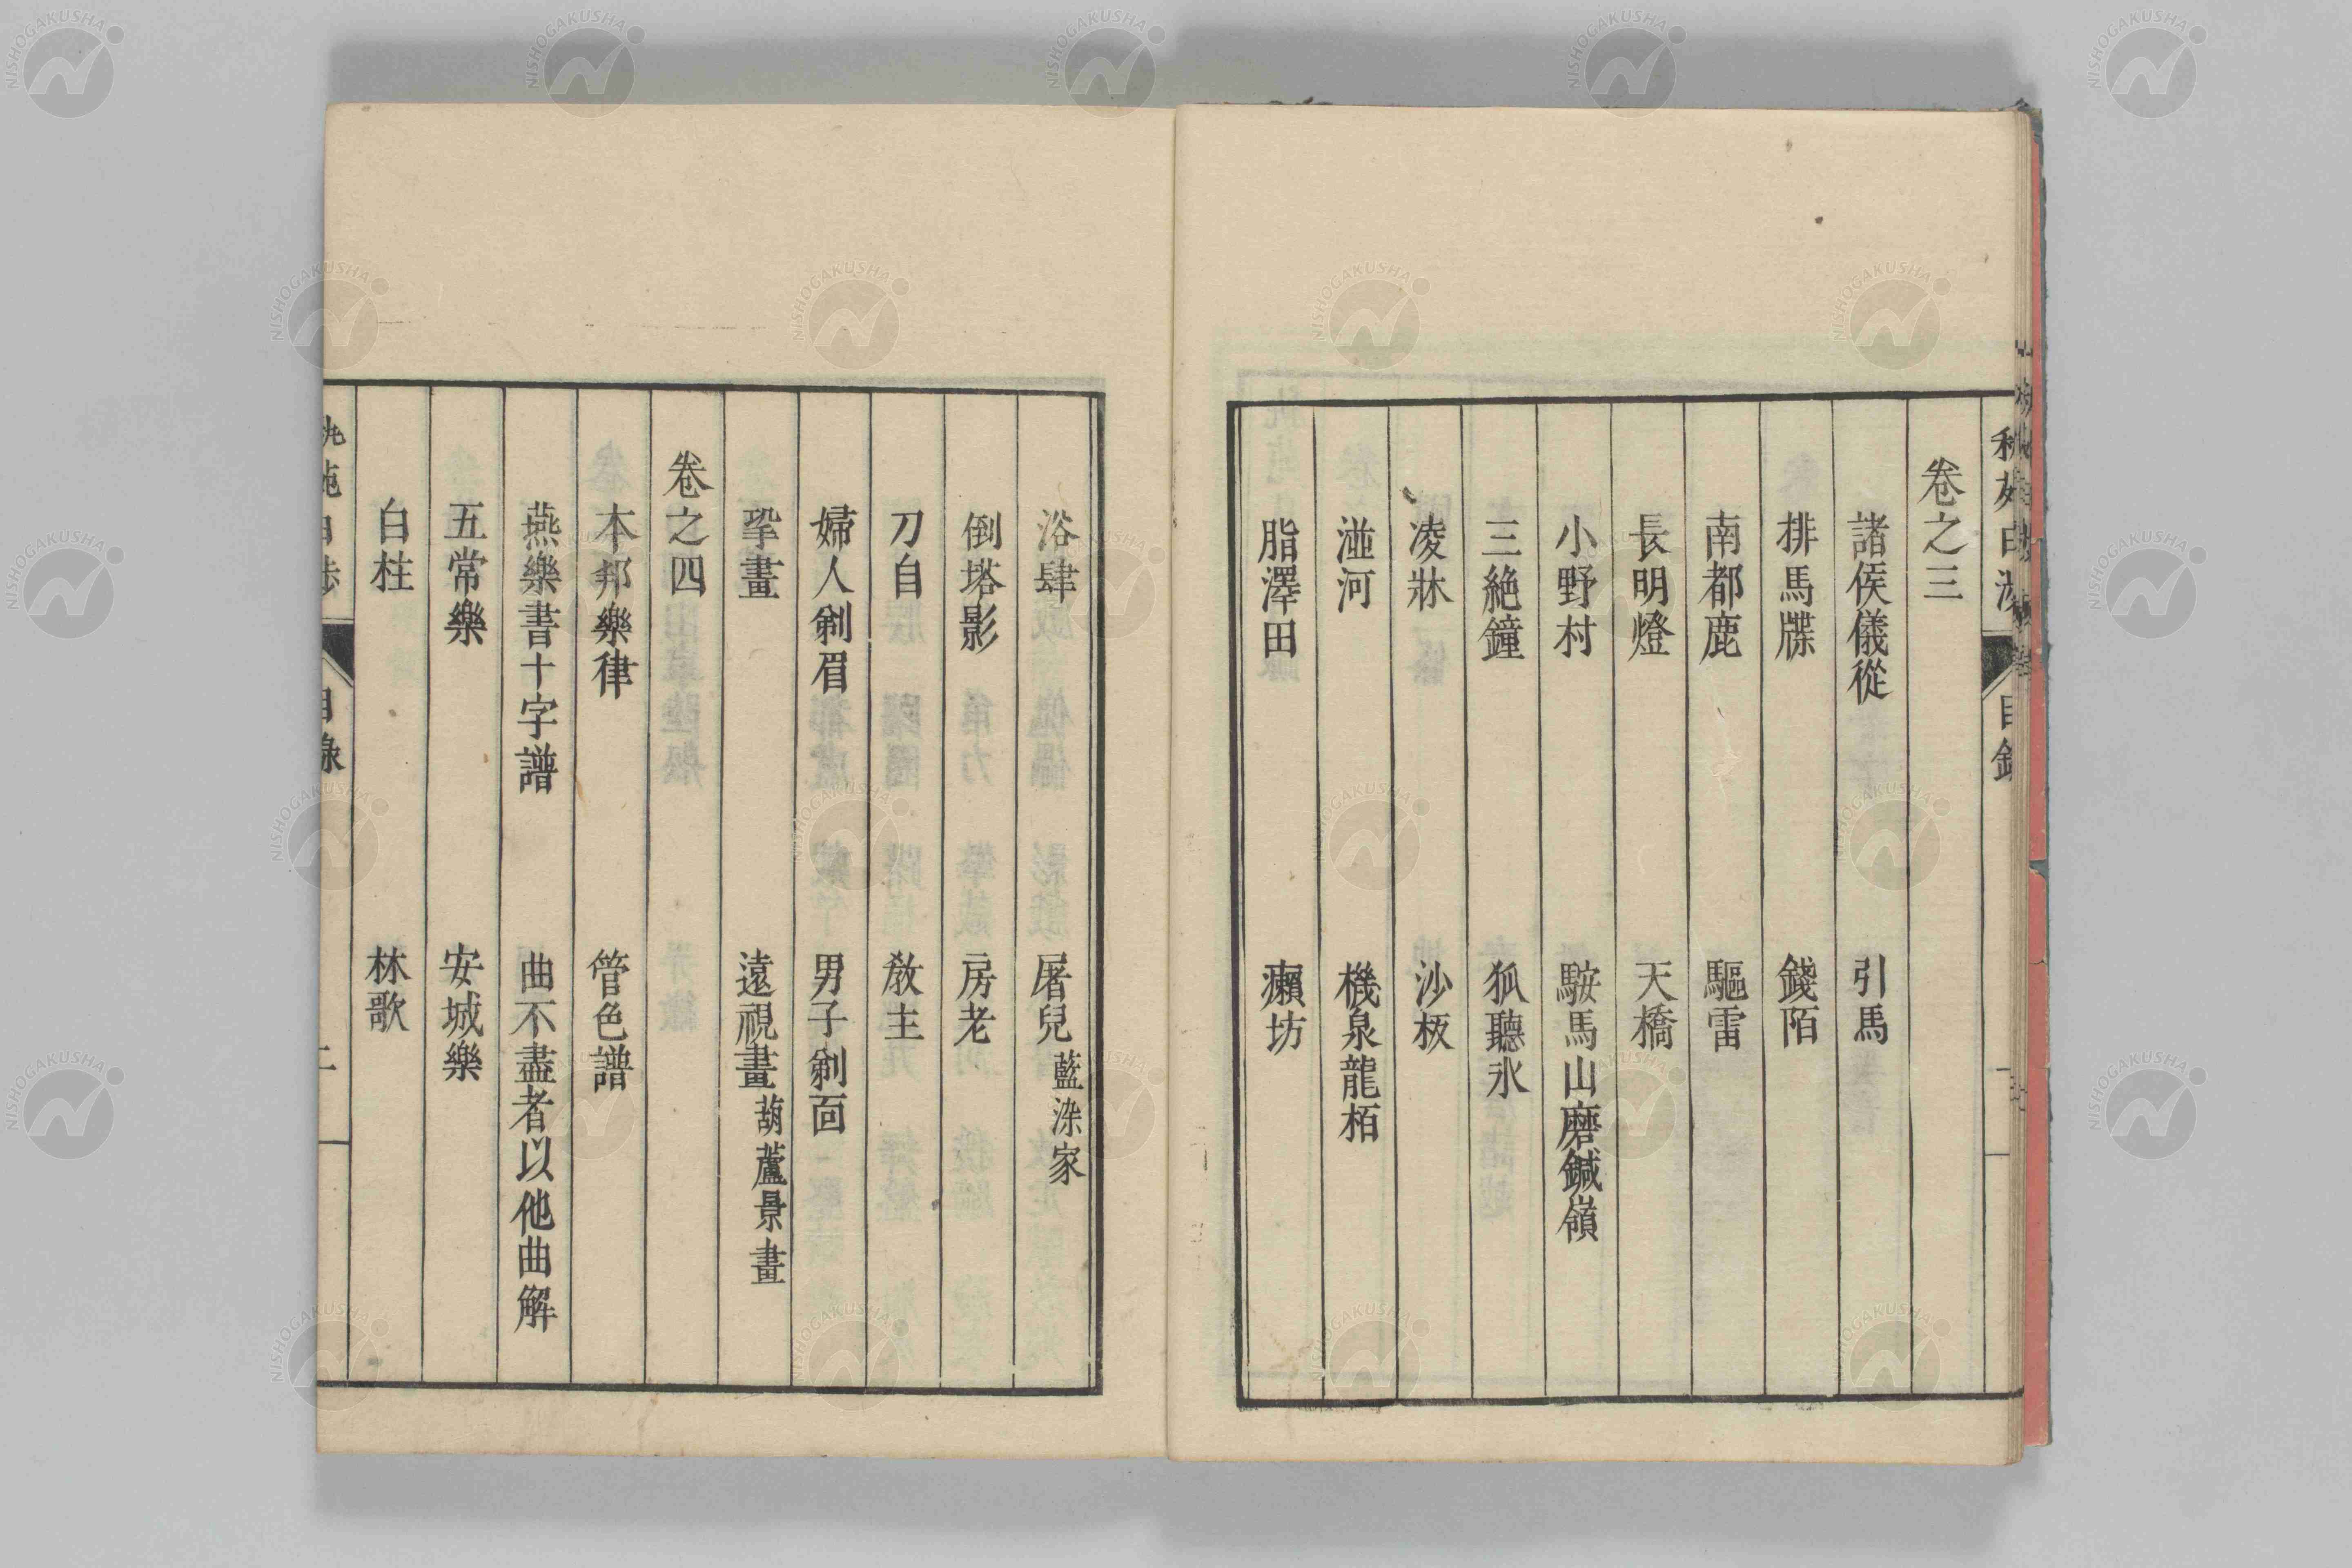 卷之三
諸侯儀從　引馬
排馬牒　錢陌
南都鹿　驅雷
長明燈　天橋
小野村　騌馬山磨鍼嶺
三絶鐘　狐聽氷
凌牀　沙板
湴河　機泉龍栢
脂澤田　癩坊
浴肆　屠兒藍染家
倒塔影　房老
刀自　教主
婦人剃眉　男子剃面
鞏畫　遠視畫葫蘆景畫
卷之四
本邦樂律　管色譜
燕樂書十字譜　曲不盡者以他曲解
五常樂　安城樂
白柱　林歌
目錄
NISHOGAKUSHA